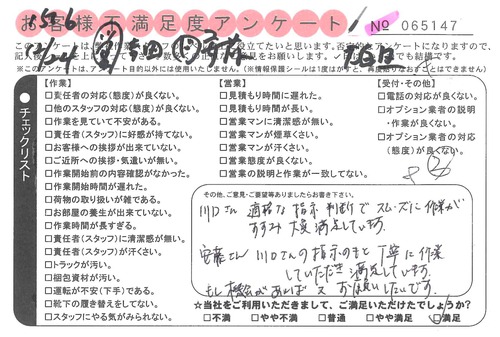 お客様不満足度アンケート
№ 065147
チェックリスト
【作業】
□責任者の対応(態度)が良くない。
□他のスタッフの対応(態度)が良くない。
□作業を見ていて不安がある。
□責任者(スタッフ)に好感が持てない。
□お客様への挨拶が出来ていない。
□ご近所への挨拶・気遣いが無い。
□作業開始前の内容確認がなかった。
□作業開始時間が遅れた。
□荷物の取り扱いが雑である。
□お部屋の養生が出来ていない。
□作業時間が長すぎる。
□責任者(スタッフ)に清潔感が無い。
□責任者(スタッフ)が汗くさい。
□トラックが汚い。
□梱包資材が汚い。
□運転が不安(下手)である。
□靴下の履き替えをしてない。
□スタッフにやる気がみられない。
【営業】
□見積もり時間に遅れた。
□見積もり時間が長い。
□営業マンに清潔感が無い。
□営業マンが煙草くさい。
□営業マンが汗くさい。
□営業態度が良くない。
□営業の説明と作業が一致してない。
【受付・その他】
□電話の対応が良くない。
□オプション業者の説明
・作業が良くない。
□オプション業者の対応
(態度)が良くない。
その他、ご意見・ご要望等ありましたらお書き下さい。
川口さん 適格な指示 判断でスムーズに作業が
すすみ 大変満足しています。
安藤さん 川口さんの指示のもと 丁寧に作業
していただき 満足しています。
もし機会があれば 又お願いしたいです。
☆当社をご利用いただきまして、ご満足いただけたでしょうか?
□不満 □やや不満 □普通 □やや満足 ☑満足